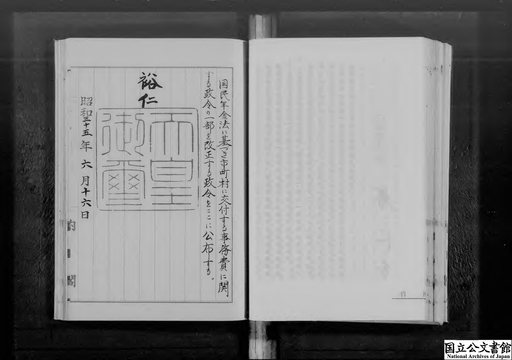 国民年金法に基づき市町村に交付する事務費に関
する政令の一部を改正する政令をここに公布する。
裕仁
天皇
御璽
昭和三十五年六月十六日
内閣
国立公文書館
National Archives of Japan